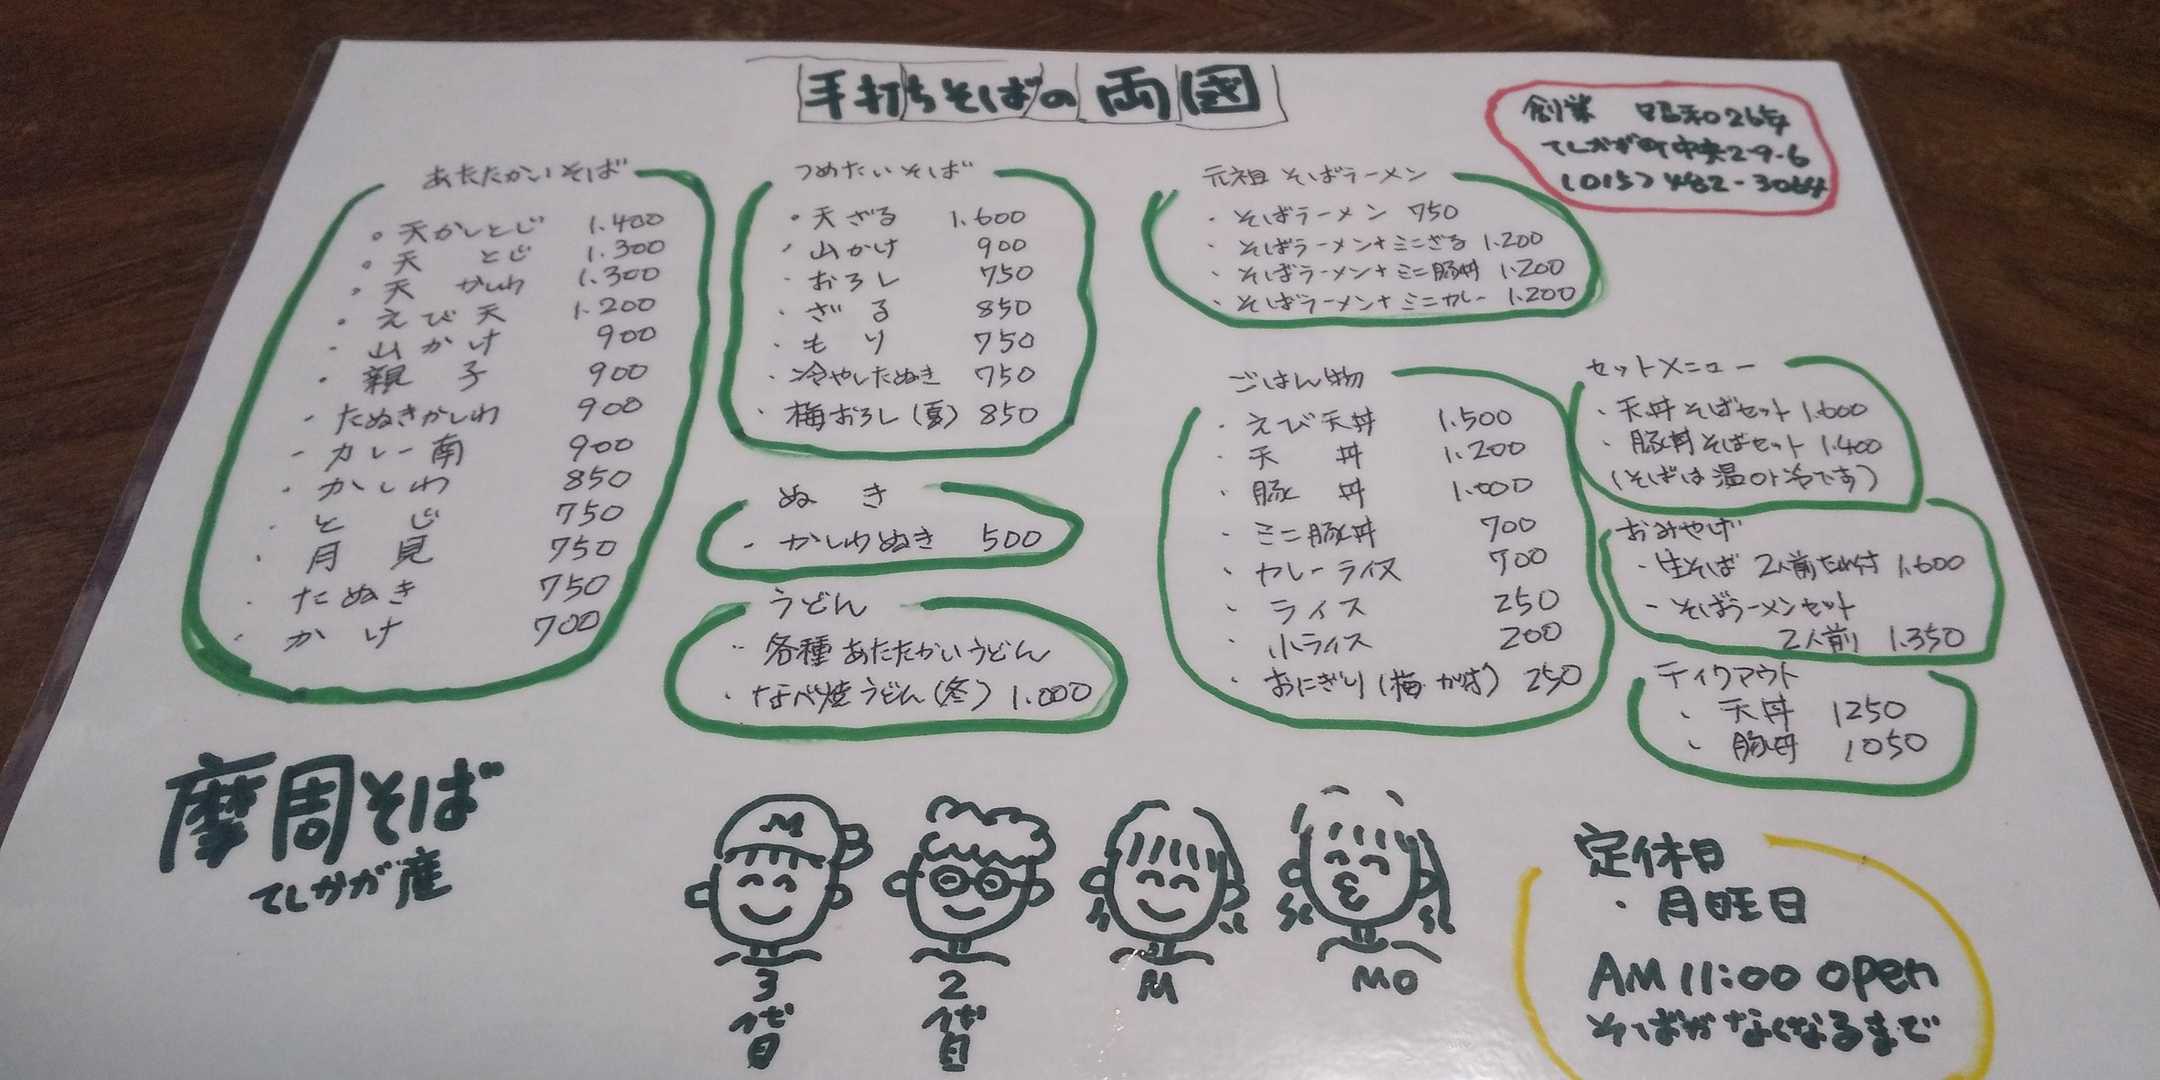 手打ちそばの両國
創業 昭和26年
てしかが町中央2-9-6
(015)482-3064
あたたかいそば
・天かしとじ 1.400
・天とじ 1.300
・天かしわ 1.300
・えび天 1.200
・山かけ 900
・親子 900
・たぬきかしわ 900
・カレー南 900
・かしわ 850
・とじ 750
・月見 750
・たぬき 750
・かけ 700
つめたいそば
・天ざる 1.600
・山かけ 900
・おろし 750
・ざる 850
・もり 750
・冷やしたぬき 750
・梅おろし(夏) 850
ぬき
・かしわぬき 500
うどん
・各種あたたかいうどん
・なべ焼うどん(冬) 1.000
元祖 そばラーメン
・そばラーメン 750
・そばラーメン+ミニざる 1.200
・そばラーメン+ミニ豚丼 1.200
・そばラーメン+ミニカレー 1.200
ごはん物
・えび天丼 1.500
・天丼 1.200
・豚丼 1.000
・ミニ豚丼 700
・カレーライス 700
・ライス 250
・小ライス 200
・おにぎり(梅・かつお) 250
セットメニュー
・天丼そばセット 1.600
・豚丼そばセット 1.400
(そばは温or冷です)
おみやげ
・生そば 2人前たれ付 1.600
・そばラーメンセット
2人前 1.350
テイクアウト
・天丼 1250
・豚丼 1050
摩周そば
てしかが産
M
3代目
2代目
M
MO
定休日
・月曜日
AM11:00 open
そばがなくなるまで